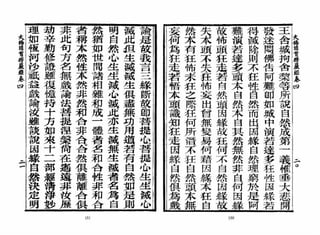 王舍城拘舍梨等所說自然成第一義惟垂大悲開
發迷悶佛告阿難即如城中演若達多狂性因緣若
得滅除則不狂性自然而出因緣自然理窮於是阿
難演若達多頭本自然本自其然無然非自何因緣
故怖頭狂走若自然頭因緣故狂何不自然因緣故
失本頭不失狂怖妄出曾無變易何藉因緣本狂自
然本有狂怖未狂之際狂何所潛不狂自然頭本無
妄何為狂走若悟本頭識知狂走因緣自然俱為戲
論是故我言三緣斷故即菩提心菩提心生生滅心
滅此但生滅滅生俱盡無功用道若有自然如是則
明自然心生生滅心滅此亦生滅無生滅者名為自
然猶如世間諸相雜和成一體者名和合性非和合
者稱本然性本然非然和合非合合然俱離離合俱
非此句方名無戲論法菩提涅槃尚在遙遠非汝歷
劫辛勤修證雖復憶持十方如來十二部經清淨妙
理如恒河沙祇益戲論汝雖談說因緣自然決定明